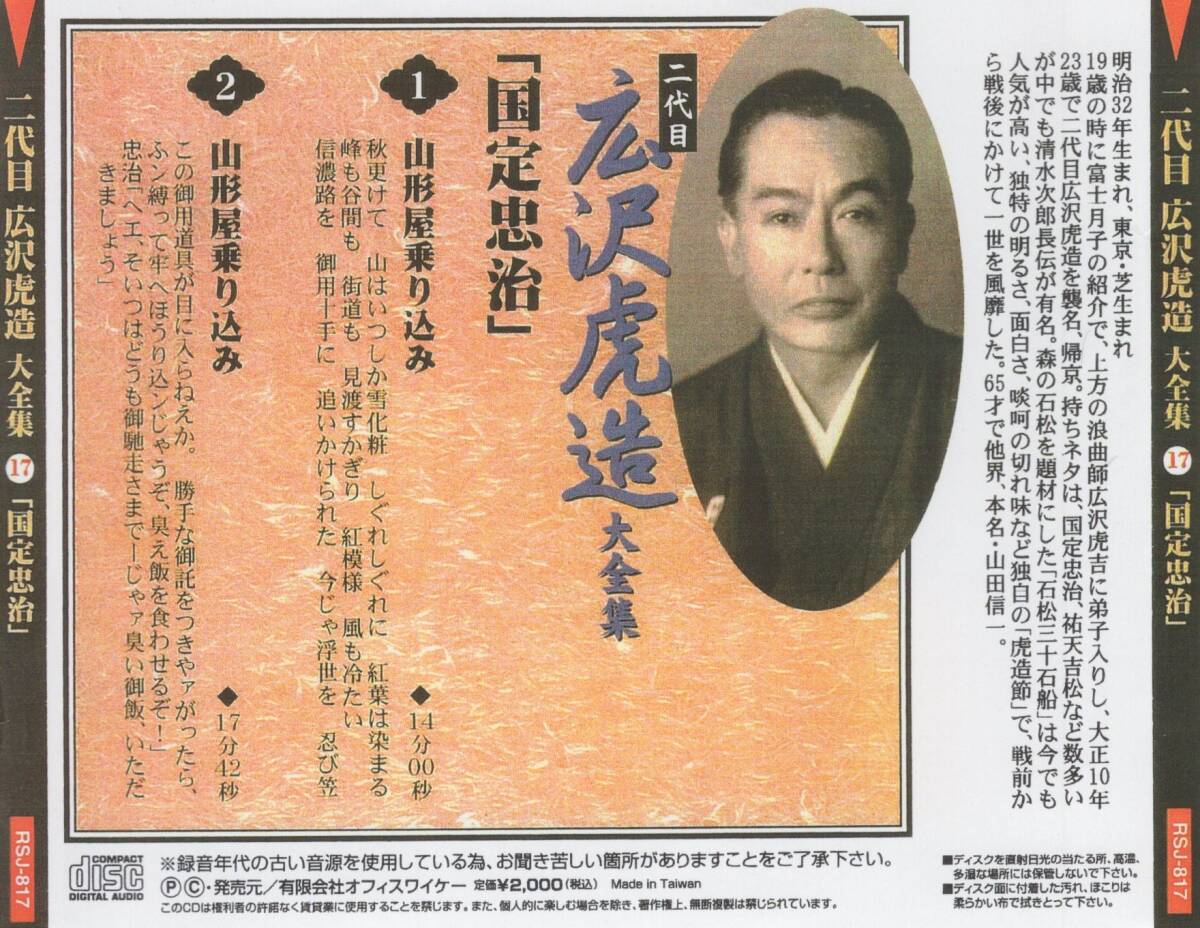 二代目 広沢虎造 大全集 17 「国定忠治」
RSJ-817
明治32年生まれ、東京・芝生まれ
19歳の時に富士月子の紹介で、上方の浪曲師広沢虎吉に弟子入りし、大正10年
23歳で二代目広沢虎造を襲名、帰京。持ちネタは、国定忠治、祐天吉松など数多い
が中でも清水次郎長伝が有名。森の石松を題材にした「石松三十石船」は今でも
人気が高い、独特の明るさ、面白さ、啖呵の切れ味など独自の「虎造節」で、戦前か
ら戦後にかけて一世を風靡した。65才で他界、本名・山田信一。
二代目
広沢虎造 大全集
「国定忠治」
1 山形屋乗り込み ◆14分00秒
秋更けて 山はいつしか雪化粧 しぐれしぐれに 紅葉は染まる
峰も谷間も 街道も 見渡すかぎり 紅模様 風も冷たい
信濃路を 御用十手に 追いかけられた 今じゃ浮世を 忍び笠
2 山形屋乗り込み ◆17分42秒
この御用道具が目に入らねえか。 勝手な御託をつきやァがったら、
ふン縛って牢へほうり込ンじゃうぞ、臭え飯を食わせるぞ！」
忠治「ヘエ、そいつはどうも御馳走さまでーじゃァ臭い御飯、いただ
きましょう」
二代目 広沢虎造 大全集 17 「国定忠治」
RSJ-817
COMPACT
disc
DIGITAL AUDIO
※録音年代の古い音源を使用している為、お聞き苦しい箇所がありますことをご了承下さい。
ⓅⒸ・発売元／有限会社オフィスワイケー 定価¥2,000(税込) Made in Taiwan
このCDは権利者の許諾なく賃貸業に使用することを禁じます。また、個人的に楽しむ場合を除き、著作権上、無断複製は禁じられています。
■ディスクを直射日光の当たる所、高温、
多湿な場所には保管しないで下さい。
■ディスク面に付着した汚れ、ほこりは
柔らかい布で拭きとって下さい。